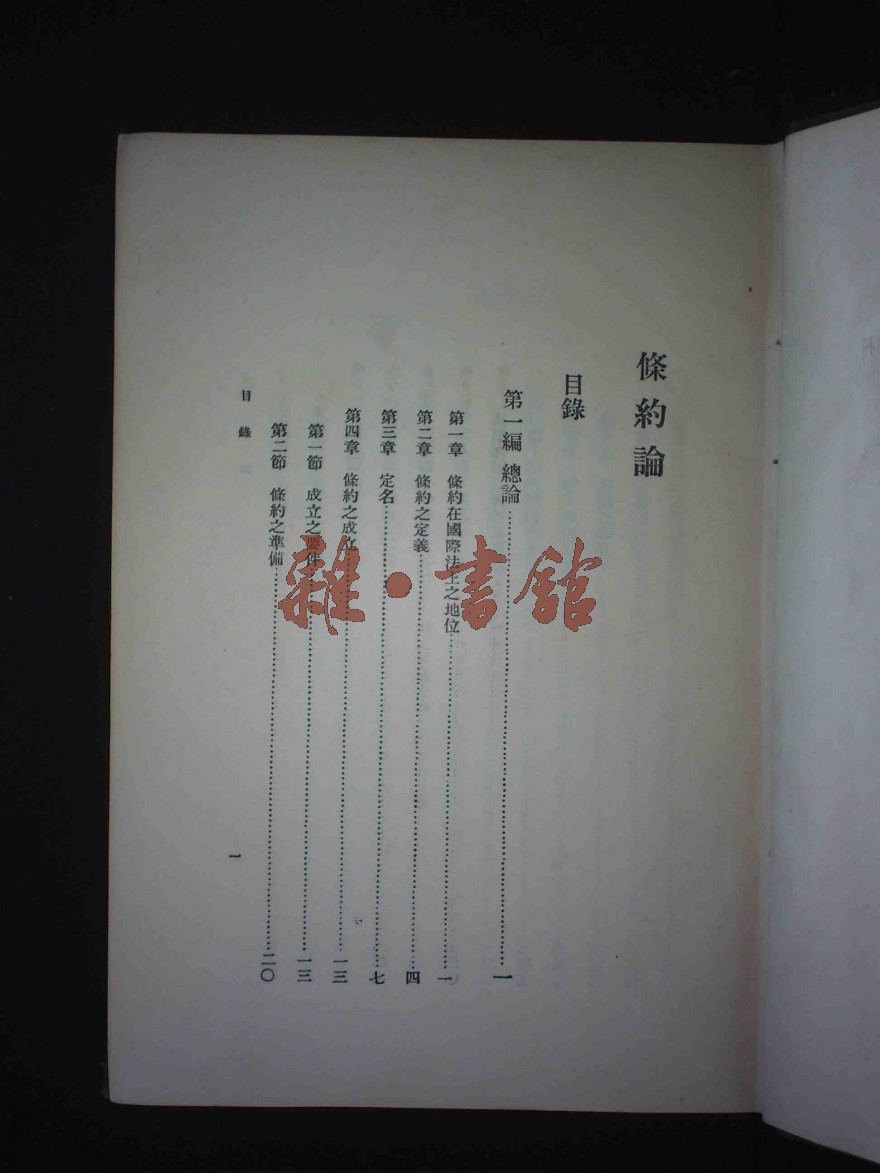 條約論
目錄
第一編 總論……一
第一章 條約在國際法上之地位……一
第二章 條約之定義……四
第三章 定名……七
第四章 條約之成立……一三
第一節 成立之要件……一三
第二節 條約之準備……二〇
目錄
一
雜·書館